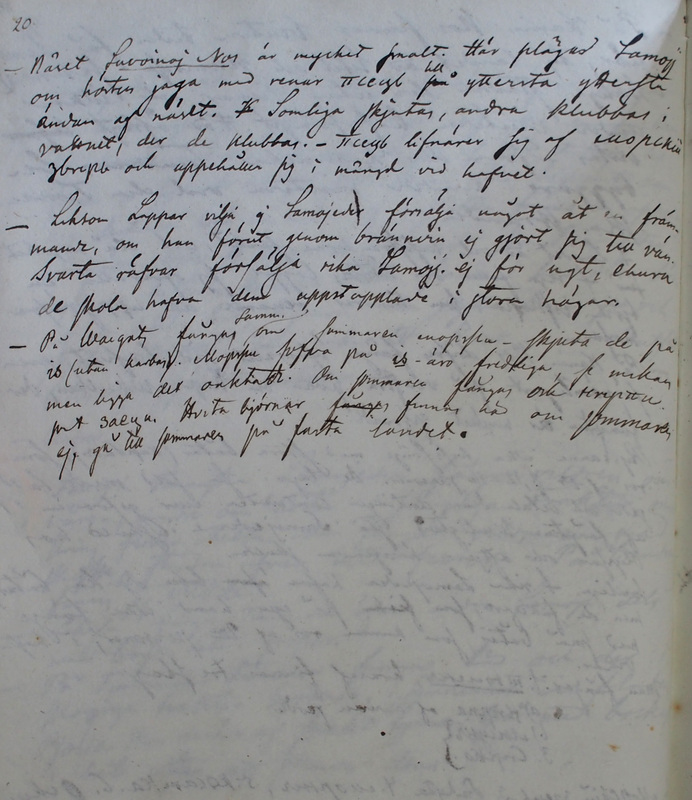 20
— Näset Suvoinoj Nos är mycket smalt. Här plägas Samoj.
om hösten jaga med renar песцъ till yttersta
ändan af näset. Somliga skjutas, andra klubbas i
vattnet, der de klubbas. — песцъ lifnärer sig af морскiй
звѣрь och uppehåller sig i mängd vid hafvet.
— Liksom Lappar vilja ej Samojeder försälja något åt en främ-
mande, om han förut genom brännvin ej gjort sig till vän.
Svarta räfvar försälja rika Samojj. ej för ngt, ehuru
de skola hafva dem uppstaplade i stora högar.
— På Waigats fångas Samm. om sommaren моржи — skjuta de på
is (utan karbas). Моржи sofva på is — äro fredliga,
men ligga der Om sommaren fångas och
заецъ. Hvita björnar finnas här om sommaren
ej, gå till sommaren på fasta landet.